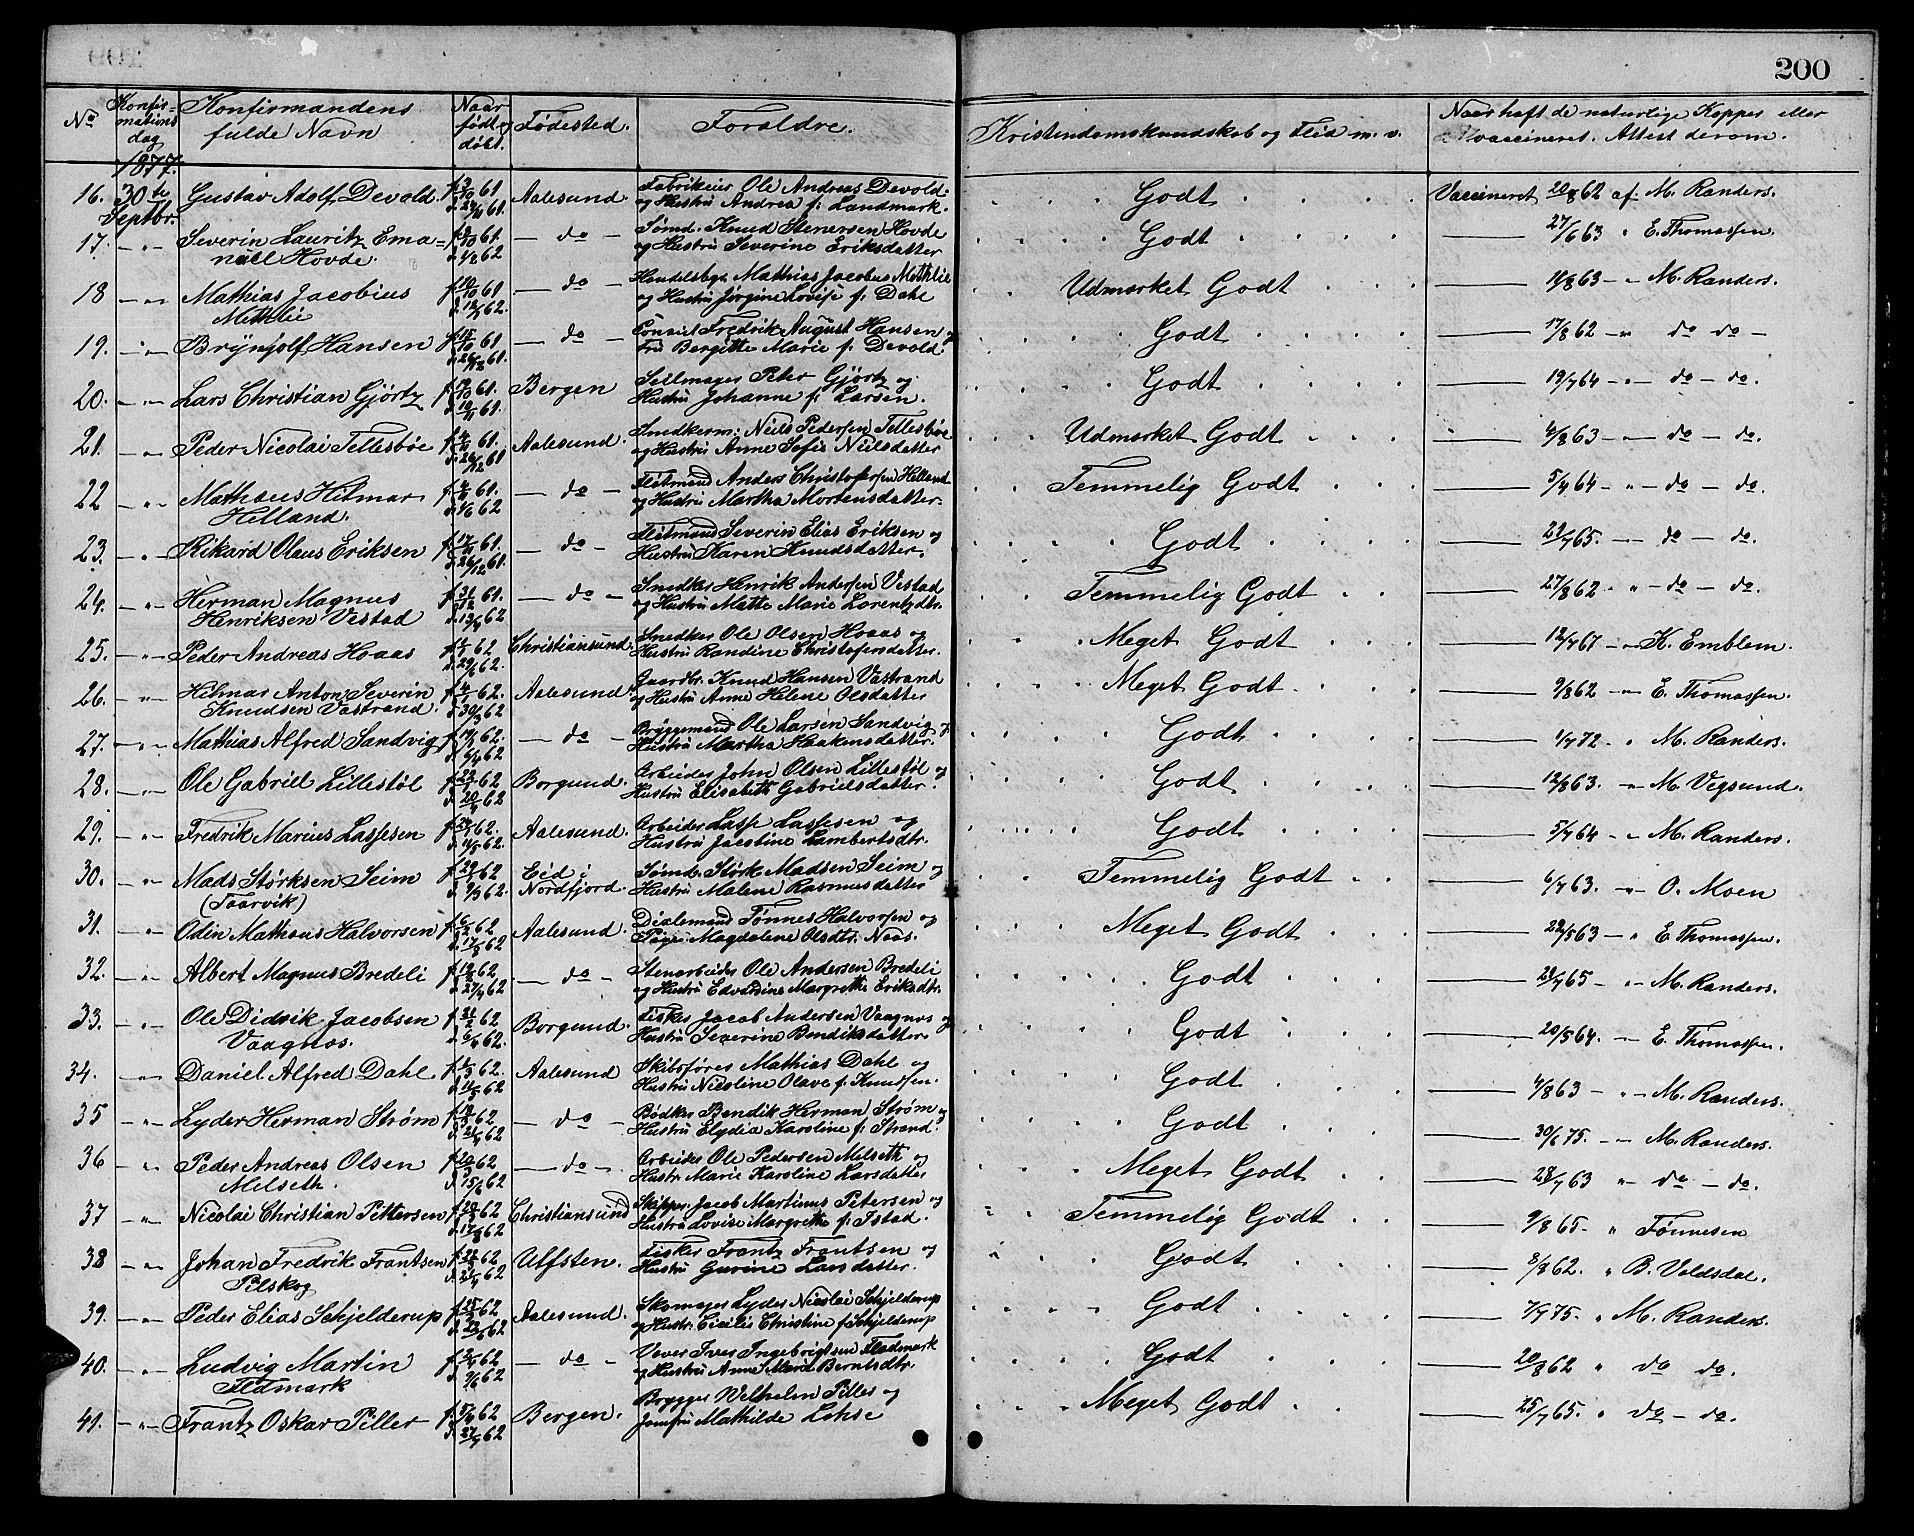 200
No
Konfirmations dag
Konfirmandens fulde Navn
Naar født og døbt.
Fødested.
Forældre.
Kristendomskundskab og Flid m. v.
Naar haft de naturlige Kopper eller vaccineret. Attest derom.
1877.
16. 30te Septbr. Gustav Adolf Devold. Aalesund. Fabrikeier Ole Andreas Devold og Hustru Andrea f. Landmark. Godt Vaccineret 20/8 62 af M. Randers.
17. -"- Severin Lauritz Emanuel Hovde. f. 61 d. 62 - do - Sømd. Knud Stenersen Hovde og Hustru Severine Eriksdatter Godt 27/6 63 " E. Thomassen.
18 -"- Mathias Jacobius Methlie 61 62. - do - Handelsbgt. Mathias Jacobus Methlie og Hustru Jørgine Lovise f. Dahl Udmærket Godt 11/8 63 -"- M. Randers.
19. -"- Brynjolf Hansen 61 61. - do - Consul Fredrik August Hansen og Fru Bergitte Marie f. Devold. Godt 17/8 62 -"- do do -
20. -"- Lars Christian Gjørtz f. 19/10 61. Bergen Sellmager Peter Gjørtz og Hustru Johanne f. Larsen. Godt 19/7 64 -"- do - do.
21. -"- Peder Nicolai Tellesbøe 61. d. 26/12 61 Aalesund. Snedkerm. Niels Pedersen Tellesbøe og Hustru Anne Sofie Nielsdatter Udmærket Godt 4/8 63 -"- do - do.
22 -"- Mathæus Hilmar Helland. 61. 62 - do - Fløtmand Anders Christofersen Helland og Hustru Martha Mortensdatter. Temmelig Godt 5/7 64 -"- do - do.
23. -"- Rikard Olaus Eriksen f. 17/11 61. d. 26/12 61. - do - Fløtmand Severin Elias Eriksen og Hustru Karen Knudsdatter. Godt 21/7 65. -"- do - do.
24. -"- Herman Magnus Henriksen Vestad f. 31/12 61. 62 - do - Snedker Henrik Andersen Vestad og Hustru Mette Marie Lorentzdtr. Temmelig Godt 27/8 62 " - do - do.
25. -"- Peder Andreas Hoaas 62 62. Christiansund. Snedker Ole Olsen Hoaas og Hustru Randine Christofersdatter. Meget Godt 12/7 67 -"- K. Emblem.
26. -"- Hilmar Anton Severin Knudsen Vastrand. 62. d. 30/3 62 Aalesund. Gaardbr. Knud Hansen Vastrand og Hustru Anne Helene Olsdatter Meget Godt 9/8 62 -"- E. Thomassen.
27. -"- Mathias Alfred Sandvig 62. 62 - do - Bryggemand Ole Larsen Sandvig og Hustru Martha Haakensdatter. Godt 1/7 72 - " M. Randers.
28. -"- Ole Gabriel Lillestøl 62 62 Borgund. Arbeider John Olsen Lillestøl og Hustru Elisabeth Gabrielsdatter. Godt 12/8 63. -"- M. Vegsund.
29. -"- Fredrik Marius Lassesen 62. 62. Aalesund. Arbeider Lasse Lassesen og Hustru Jacobine Lambertsdtr. Godt 5/7 64 -"- M. Randers.
30. -"- Mads Størksen Seim (Taarvik) 62 62. Eid i Nordfjord. Sømd. Størk Madsen Seim og Hustru Malene Rasmusdatter Temmelig Godt 6/7 63. -"- O. Moen
31. -"- Odin Mathæus Halvorsen 62 62 Aalesund. Tønnes Halvorsen og Pige Magdalene Olsdtr. Naas. Meget Godt 22/5 63 - " E Thomassen.
32. -"- Albert Magnus Bredeli 62 62 - do - Stenarbeider Ole Andersen Bredeli og Hustru Edvardine Margrethe Eriksdtr. Godt 21/7 65 - " - M. Randers.
33. -"- Ole Didrik Jacobsen Vaagnos. 62 62. Borgund. Fisker Jacob Andersen Vaagnos og Hustru Severine Bendiksdatter Godt 20/5 64. - E. Thomassen.
34. -"- Daniel Alfred Dahl. 62 62 Aalesund Skibsfører Mathias Dahl og Hustru Nicoline Olave f. Knudsen. Godt 4/8 63 - " - M. Randers.
35 -"- Lyder Herman Strøm 62 62 - do - Bødker Bendik Herman Strøm og Hustru Elydia Karoline f. Strand. Godt 30/6 75. -"- M. Randers.
36 -"- Peder Andreas Olsen Melseth. 62 d. 15/6 62 - do - Arbeider Ole Pedersen Melseth og Hustr. Marie Karoline Larsdatter Meget Godt 28/7 63 " - do - do.
37 -"- Nicolai Christian Pettersen 62 d. 17/8 62 Christiansund Skipper Jacob Martinus Petersen og Hustru Lovise Margrethe f. Istad. Temmelig Godt 9/8 65. " Tønnesen
38 -"- Johan Fredrik Frantsen Pilskog 62 62 Ulfsten. Fisker Frantz Frantsen og Hustru Gurine Larsdatter. Godt 8/8 62. " B. Voldsdal.
39. -"- Peder Elias Schjelderup 62 62 Aalesund. Skomager Lyder Nicolai Schjelderup og Hustr. Cicilie Christine f. Schjelderup Godt 7/7 75. " M. Randers.
40. -"- Ludvig Martin Fladmark 62 62 - do - Væver Iver Ingebrigtsen Fladmark og Hustru Anne Marit Berntsdtr. Godt 20/8 62 " do do.
41. -"- Frantz Oskar Piller 62 62 Bergen. Brygger Wilhelm Piller og Jomfru Mathilde Lohse Meget Godt 25/7 65. " do - do.